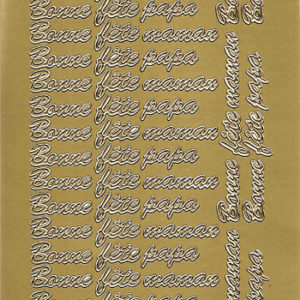 Bonne fête papa
Bonne fête maman
Bonne fête papa
Bonne fête maman
Bonne fête papa
Bonne fête maman
Bonne fête papa
Bonne fête maman
Bonne fête papa
Bonne fête maman
Bonne fête papa
Bonne fête maman
Bonne fête papa
Bonne fête maman
Bonne fête papa
Bonne
Bonne